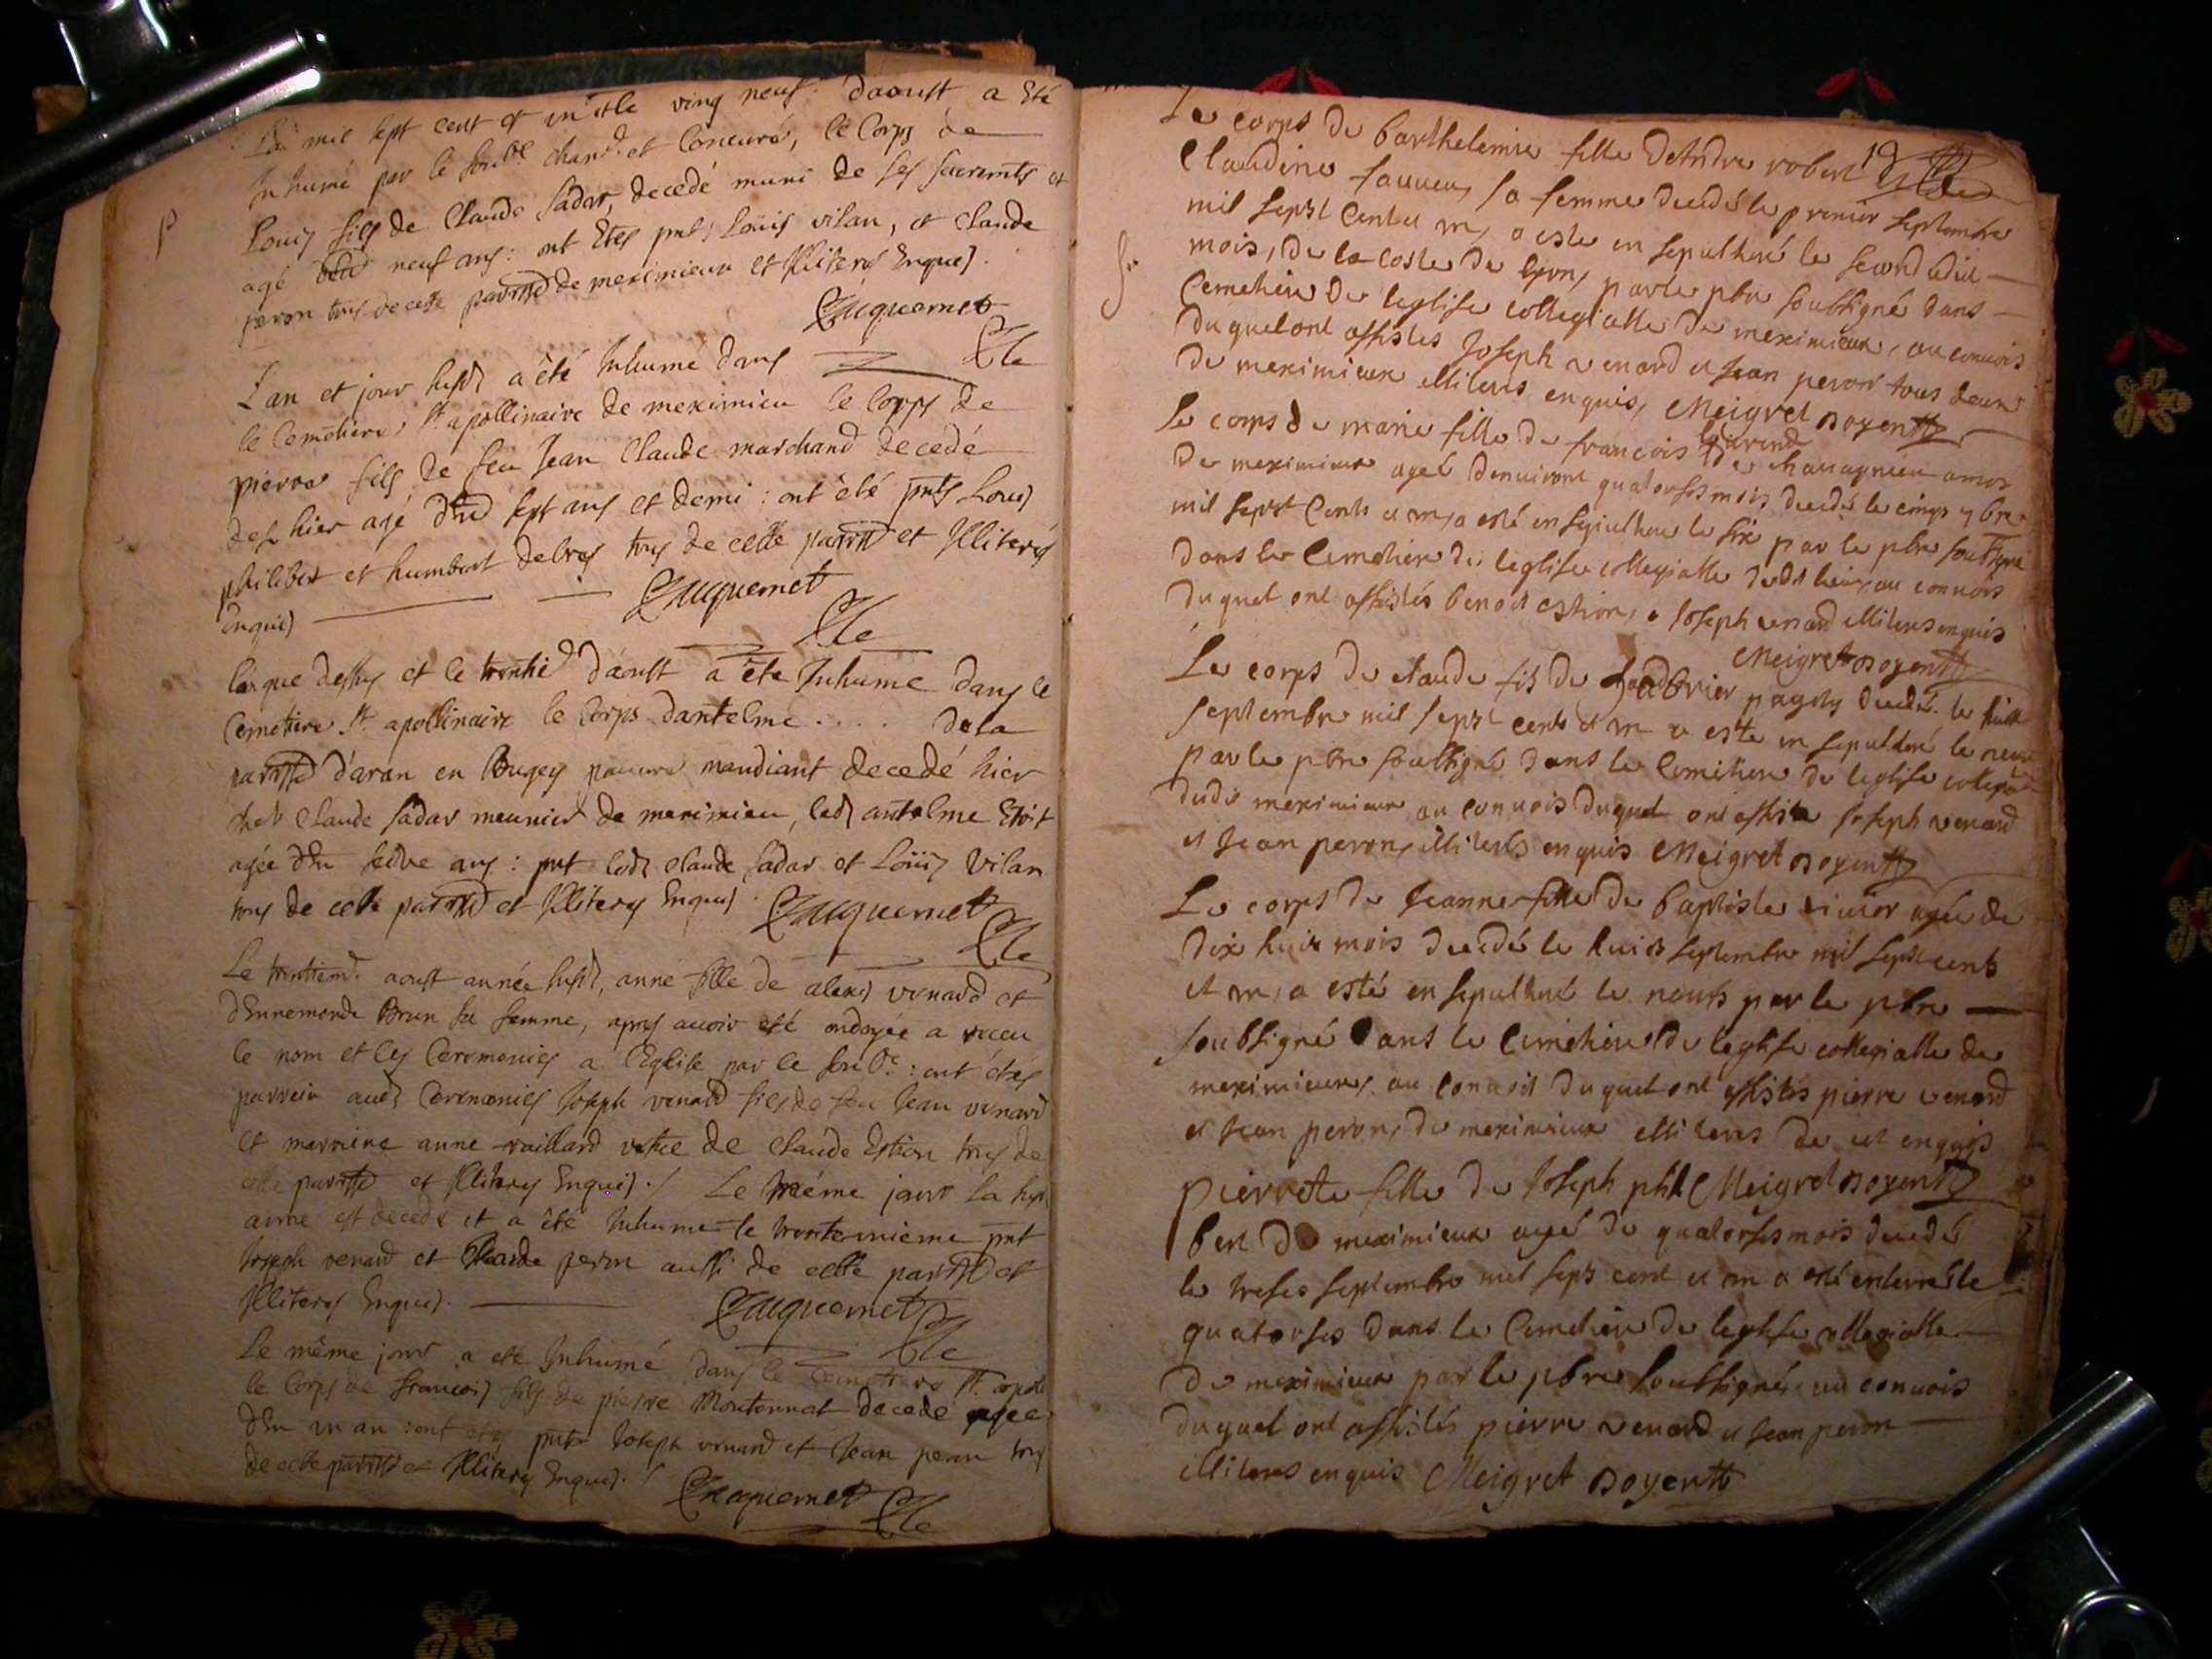 mil sept cent et un et le ving neuf d'aoust a Eté
Inhumé par le chan. et Concuré, le Corps de
Louis fils de Claude Sadar, decedé muni de ses sacremts et
agé neuf ans : ont Etés pnts Louis vilan, et Claude
peron tous de cette parrsse de meximieux et Illiterés Enquis.
Jacquemet
L'an et jour susd a été Inhumé dans
le Cemetiere St. apollinaire de meximieu le Corps de
pierre fils de feu Jean Claude marchand decedé
des hier agé d'En sept ans et demi : ont été pnts Louis
philibert et humbert debres tous de cette parrsse et Illiterés
Enquis Jacquemet
L'an que dessus et le trentie d'aoust a été Inhumé dans le
Cemetiere St. apollinaire le Corps dantelme ..... de la
parrsse d'aran en Bugey pauure mandiant decedé hier
chez Claude Sadar meunier de meximieu, led antelme Etoit
agée d'En seize ans : pnt led Claude Sadar et Louis Vilan
tous de cette parrsse et Illiterés Enquis. Jacquemet
Le trentieme aoust année susd, anne fille de alexis venard et
d'Ennemonde Brun sa femme, apres auoir eté ondoyée a receu
le nom et les Ceremonies a l'Eglise par le : ont étés
parrein aud Ceremonies Joseph venard fils de feu Jean venard
et marreine anne raillard de Claude Estion tous de
cette parrsse et Illiterés Enquis./ Le même jour la susd
anne est decedé et a été Inhumé le trenteunieme pnt
Joseph venard et Claude peron aussi de cette parrsse et
Illiterés Enquis. Jacquemet
Le même jour a eté Inhumé dans le Cemetiere St. apoli
le Corps de françois fils de pierre Monternat decedé agée
d'En un an : ont etés pnts Joseph venard et Jean peron tous
de cette parrsse et Illiterés Enquis./ Jacquemet
Le corps de barthelemie fille d'Andre robert 19
Claudine sa femme decedé le premier septembre
mil sept Cent et un, a este en sepulturé le second dud
mois, de la coste de lyon, par le pbre soubsigné dans
Cemetiere de leglise collegialle de meximieux, au conuois
duquel ont assistes Joseph venard et Jean peron tous deux
de meximieux illiterés enquis, Meigret doyen
Le corps de marie fille de françois
de meximieux agé denuiront quatorses mois decedé le cinqs 7bre
mil sept Cents et un, a esté en sepulture le six par le pbre soubsigné
dans le Cemetiere de leglise collegialle dudt lieu, au conuois
duquel ont assistés benoit estion, et Joseph venard illiterés enquis
Meigret doyen
Le corps de claude fis de pagoy decedé le huit
septembre mil sept cents et un a este en sepulturé le neuf
par le pbre soubsigné dans le Cemetiere de leglise collegia
dudit meximieux au conuois duquel ont assiste Joseph venard
et Jean peron, illiterés enquis Meigret doyen
Le corps de Jeanne fille de baptiste agée de
dix huit mois decedé le huits septembre mil sept cents
et un, a esté en sepulturé le neufs par le pbre
soubsigné dans le Cemetiere de leglise collegialle de
meximieux, au Conuoit duquel ont assistés pierre venard
et Jean peron, de meximieux illiteres de ce enquis
pierrete fille de Joseph phili Meigret doyen
bert de meximieux agé de quatorses mois decedé
le treses septembre mil sept cent et un a esté enterré le
quatorses dans le Cemetiere de leglise collegialle
de meximieux par le pbre soubsigné au conuois
duquel ont assistés pierre venard et Jean peron
illiteres enquis Meigret doyen